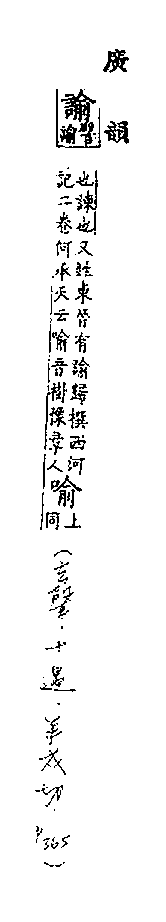 廣韻
諭
譬諭
也諫也又姓東晉有諭歸撰西河
記二卷何承天云喻音樹豫章人
喻
上同
(去聲·十遇·羊戍切·P365)